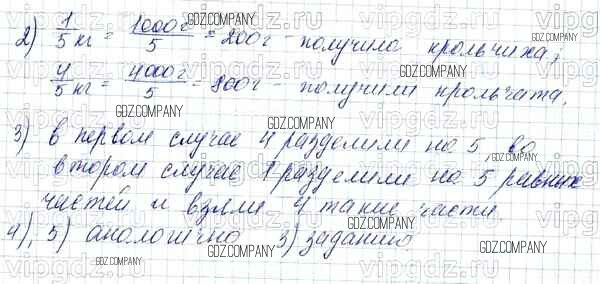 2) 1/5 кг = 1000г/5 = 200г - получила крольчиха,
4/5 кг = 4000г/5 = 800г - получили крольчата.
3) в первом случае 4 разделили на 5, во
втором случае 1 разделили на 5 равных
частей и взяли 4 такие части
4), 5) аналогично 3) заданию
GDZ.COMPANY
GDZ.COMPANY
GDZ.COMPANY
GDZ.COMPANY
GDZ.COMPANY
GDZ.COMPANY
GDZ.COMPANY
GDZ.COMPANY
GDZ.COMPANY
vipgdz.ru